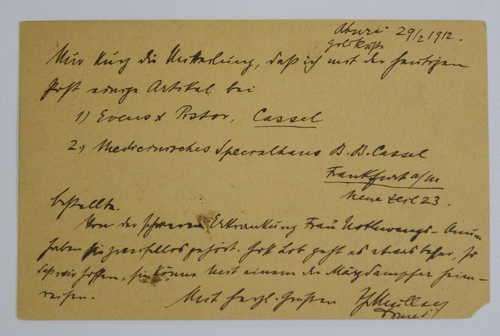 Aburi 29/2 1912.
Goldküste
Nur kurz die Mitteilung, daß ich mit der heutigen
Post einige Artikel bei
1) Evens & Pistor, Cassel
2.) Medicinisches Specialhaus B. B. Cassel
Frankfurt a/M
Neue Zeil 23.
bestellte.
Von der schweren Erkrankung Frau
haben Sie zweifellos gehört. Gott Lob geht es etwas besser, so
daß wir hoffen, sie könne mit einem der Märzdampfer heim-
reisen. Mit herzl. Grüßen